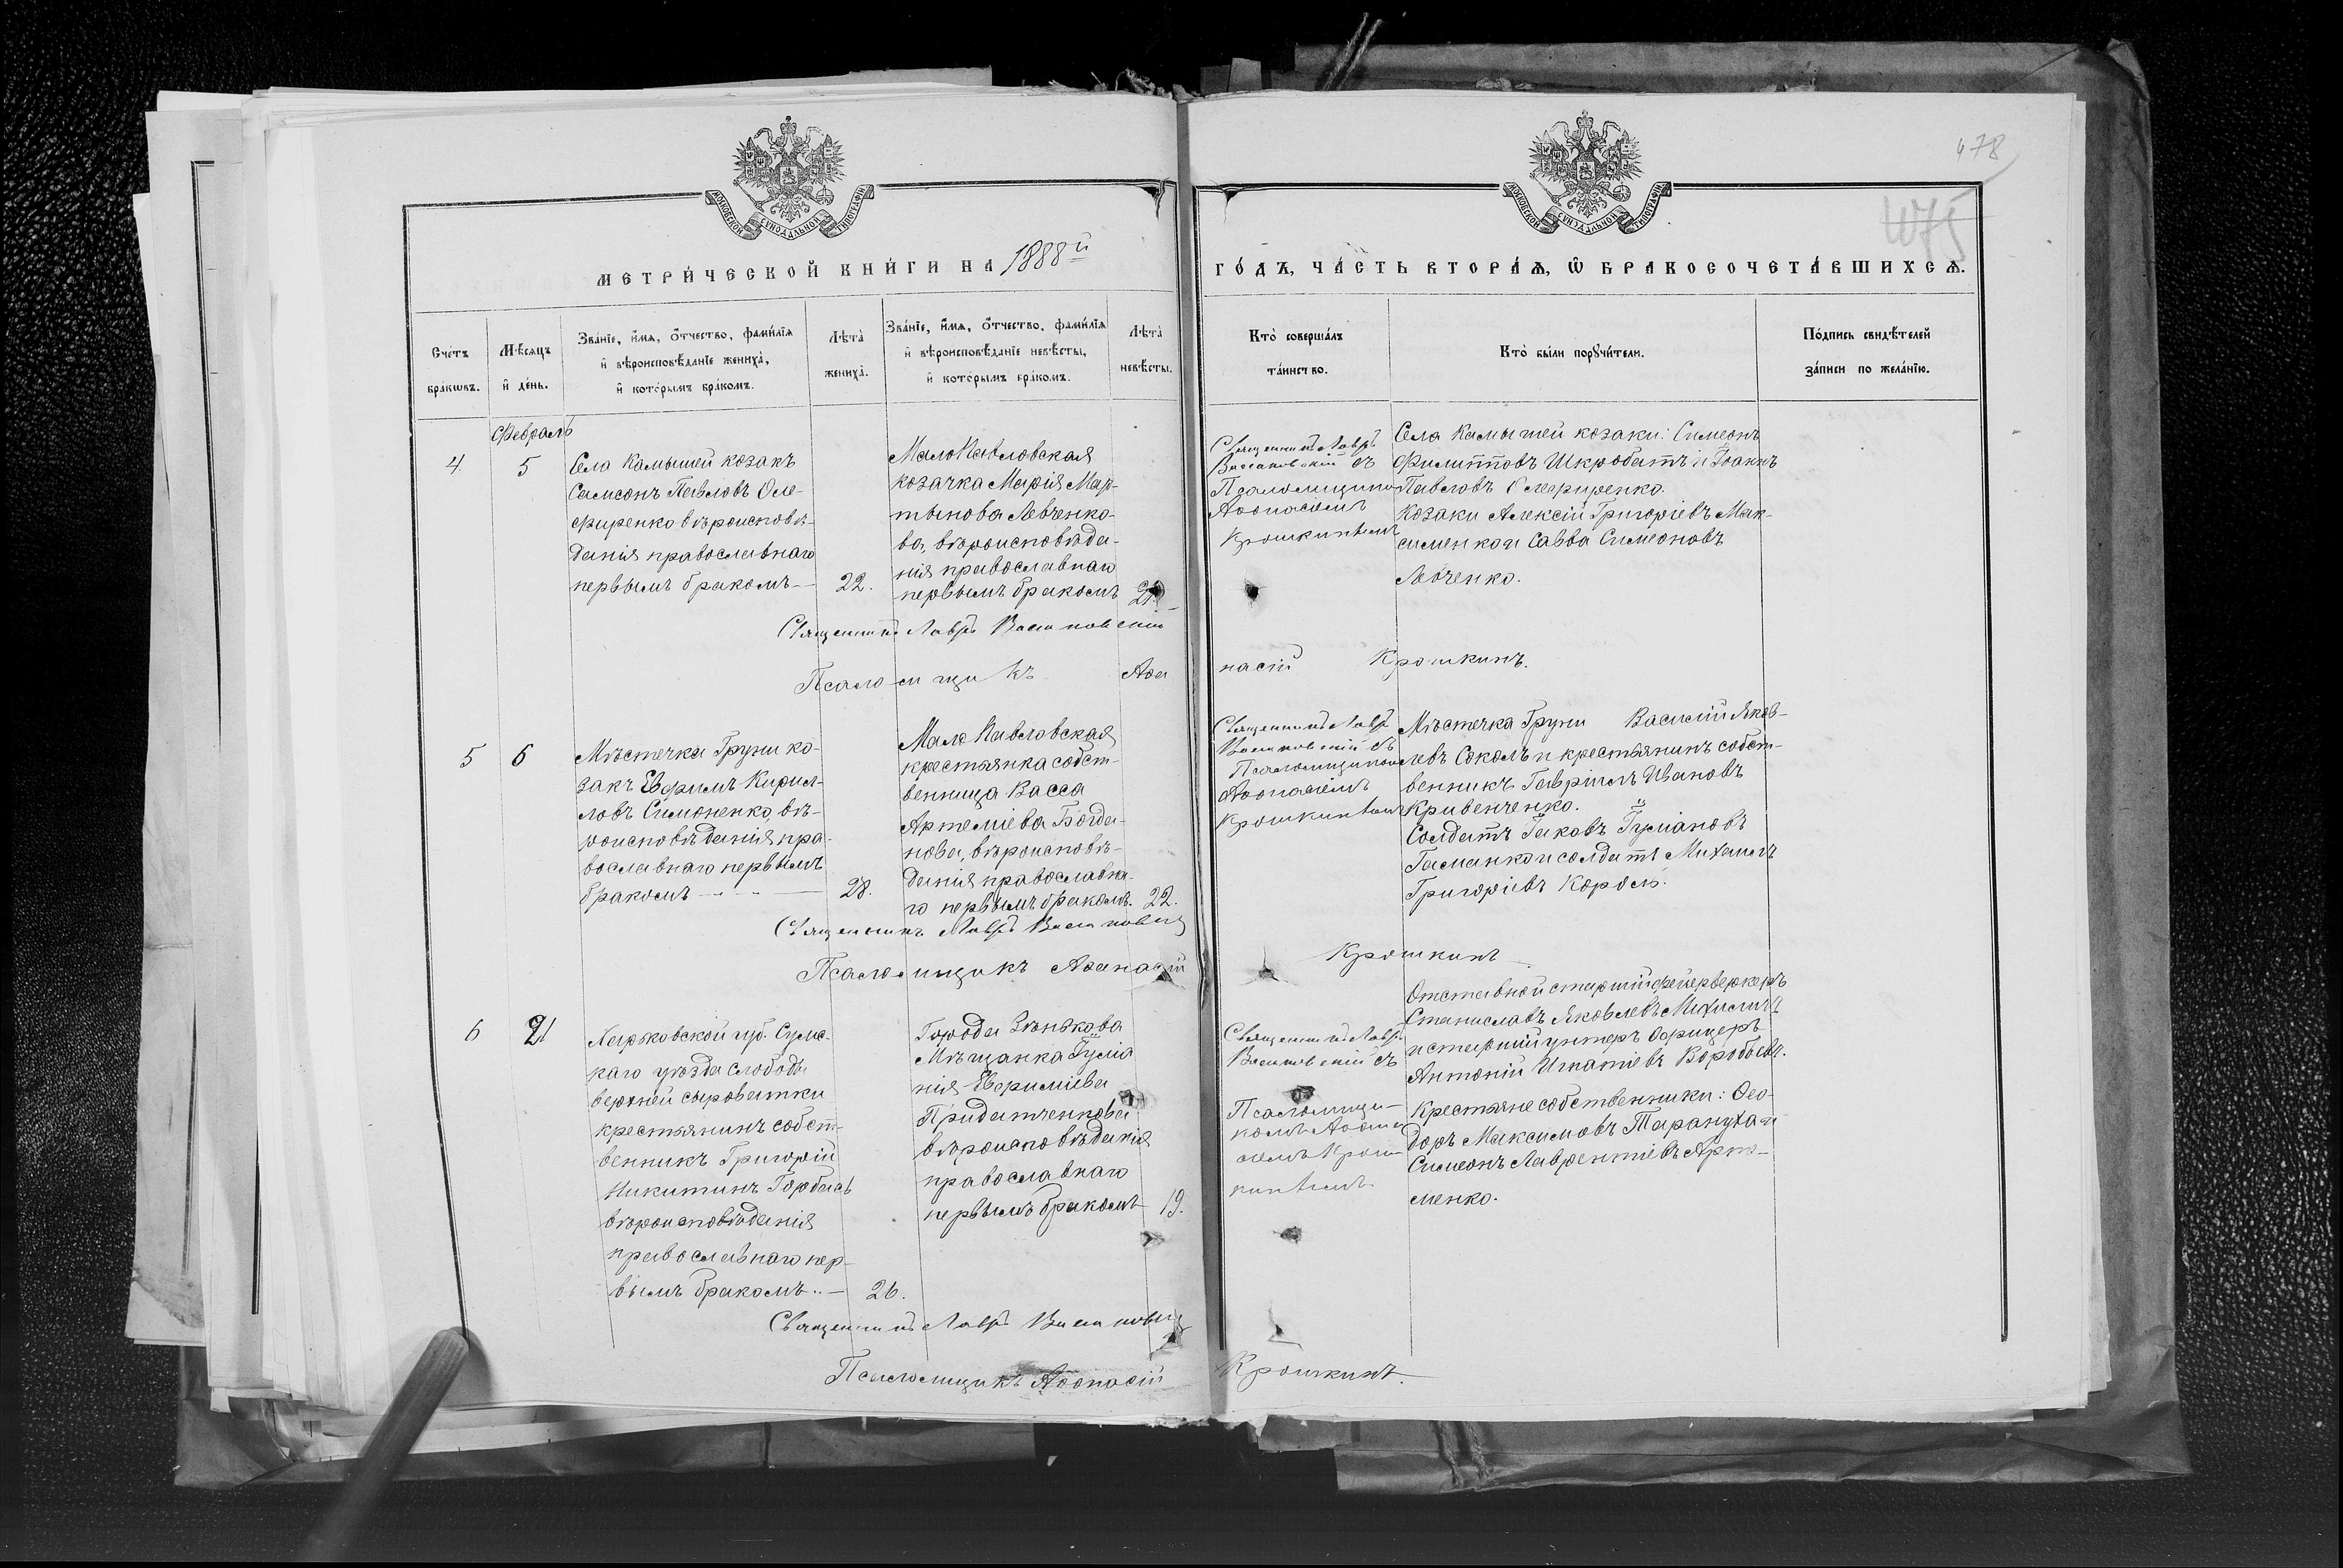 478
475
МОСКОВСКОЙ СѴНОДАЛЬНОЙ ТИПОГРАФІИ
МОСКОВСКОЙ СѴНОДАЛЬНОЙ ТИПОГРАФІИ
МЕТРИ́ЧЕСКОЙ КНИ́ГИ НА 1888й
ГО́ДЪ, ЧА́СТЬ ВТОРА́Ѧ, Ѡ҆ БРАКОСОЧЕТА́ВШИХСѦ.
Сче́тъ
бра́кѡвъ.
Мѣ́сѧцъ
и҆ де́нь.
Зва́нїе, и҆́мѧ, ѻ҆́тчество, фами́лїѧ
и҆ вѣроисповѣ́данїе жениха̀,
и҆ кото́рымъ бра́комъ.
Лѣта̀
жениха̀.
Зва́нїе, и҆́мѧ, ѻ҆́тчество, фами́лїѧ
и҆ вѣроисповѣ́данїе невѣ́сты,
и҆ кото́рымъ бра́комъ.
Лѣта̀
невѣ́сты.
Кто̀ соверша́лъ
та́инство.
Кто̀ бы́ли порꙋчи́тели.
По́дпись свидѣ́телей
за́писи по жела́нїю.
Февраль
4.
5
Села Камышей козакъ
Самсонъ Павловъ Оле-
фиренко вѣроисповѣ-
данія православнаго
первымъ бракомъ —
22.
МалоПавловская
козачка Марія Мар-
тынова Левченко-
ва, вѣроисповѣда-
нія православнаго
первымъ бракомъ
Священникъ Лавръ
Васильковскій съ
Псаломщикомъ
Аѳонасіемъ
Крошкинымъ
Села Камышей козаки: Симеонъ
Филипповъ Шкробатъ и Іоаннъ
Павловъ Олефиренко.
Козаки Алексій Григоріевъ Мак-
сименко и Савва Симеоновъ
Левченко.
Священникъ Лавръ Васильковскій
Псаломщикъ Аѳанасій Крошкинъ.
5
6
Мѣстечка Груни ко-
закъ Евфимъ Кирил-
ловъ Симоненко, вѣ-
роисповѣданія пра-
вославнаго первымъ
бракомъ —
28.
Мало Павловская
крестьянка собст-
венница Васса
Артеміева Богда-
нова, вѣроисповѣ-
данія православна-
го первымъ бракомъ.
22.
Священникъ Лавръ
Васильковскій съ
Псаломщикомъ
Аѳонасіемъ
Крошкинымъ
Мѣстечка Груни Василій Яков-
левъ Соколъ и крестьянинъ собст-
венникъ Гавріилъ Ивановъ
Кривенченко.
Солдатъ Іаковъ Іуліановъ
Гаманко и солдатъ Михаилъ
Григоріевъ Король.
Священникъ Лавръ Васильковскій
Псаломщикъ Аѳанасій Крошкинъ
6
21
Харьковской губ. Сумс-
каго уѣзда слободы
верхней сыроватки
крестьянинъ собст-
венникъ Григорій
Никитинъ Горбась
вѣроисповѣданія
православнаго пер-
вымъ бракомъ .. —
26.
Города Зѣнькова
Мѣщанка Іуліа
нія Евфиміева
Придатченкова
вѣроисповѣданія
православнаго
первымъ бракомъ
19.
Священникъ Лавръ
Васильковскій съ
Псаломщи-
комъ Аѳона
сіемъ Крош-
кинымъ
Отставной старшій фейерверкеръ
Станиславъ Яковлевъ
и старшій унтеръ офицеръ
Антоній Игнатіевъ Воробьевъ.
Крестьяне собственники: Ѳео-
доръ Максимовъ Тарануха и
Симеонъ Лаврентіевъ Арте-
менко.
Священникъ Лавръ Васильковскій
Псаломщикъ Аѳонасій Крошкинъ.